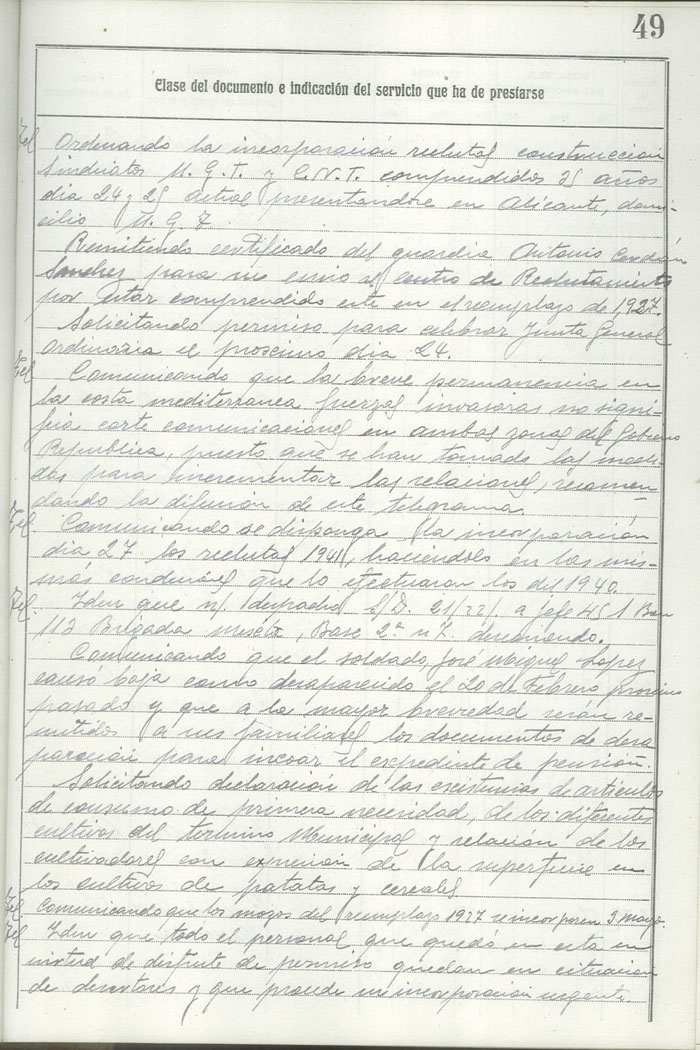 49
Clase del documento e indicación del servicio que ha de prestarse
Tel Ordenando la incorporación reclutas construcción
Sindicatos U.G.T. y C.N.T. comprendidos 35 años
dia 24 y 25 actual presentandose en Alicante, domi-
cilio U.G.T.
Remitiendo certificado del guardia Antonio
Sanchez para su envio al centro de Reclutamiento
por estar comprendido este en el reemplazo de 1927.
Solicitando permiso para celebrar Junta General
Ordinaria el proscimo dia 24.
Tel Comunicando que la breve permanencia en
la costa mediterranea fuerzas invasoras no signi-
fica corte comunicaciones en ambas zonas del Gobierno
Republica, puesto que se han tomado las medi-
das para incrementar las relaciones, recomen-
dando la difusión de este telegrama.
Tel Comunicando se disponga la incorporación
dia 27 los reclutas 1941, haciendolo en las mis-
mas condiciones que lo efectuaron los del 1940.
Tel. Idem que n/ S/D. 21/22/ a Jefe 451 Bon
113 Brigada mixta, Base 2ª n 7.
Comunicando que el soldado José Miguel Lopez
causo baja como desaparecido el 20 de Febrero proscimo
pasado y que a la mayor brevedad serán re-
mitidos a sus familiares los documentos de desa
parición para incoar el expediente de pensión.
Solicitando declaración de las existencias de articulos
de consumo de primera necesidad, de los diferentes
cultivos del termino Municipal y relación de los
cultivadores con expresion de la superficie en
los cultivos de patatas y cereales
Tel Comunicando que los mozos del reemplazo 1927 se incorporen 3 mayo.
Tel Idem que todo el personal que quedó en esta en
virtud de disfrute de permiso quedan en situación
de desertores y que procede su incorporación urgente.